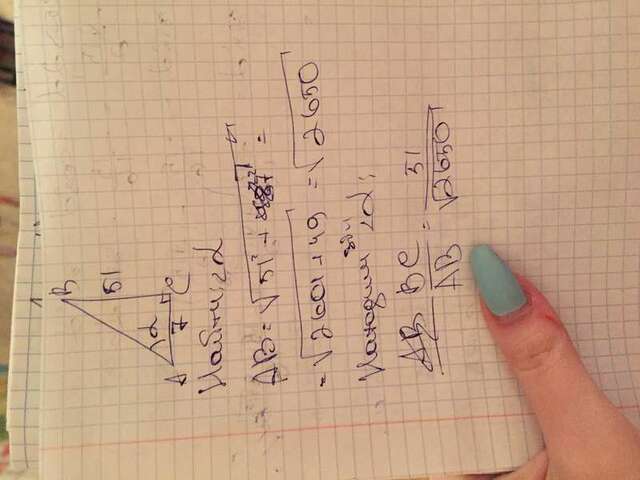 B
51
α
A 7 C
Найти ∠α
AB = √51² + 7² =
= √2601 + 49 = √2650
Находим ∠α:
AB BC/AB = 51/√2650